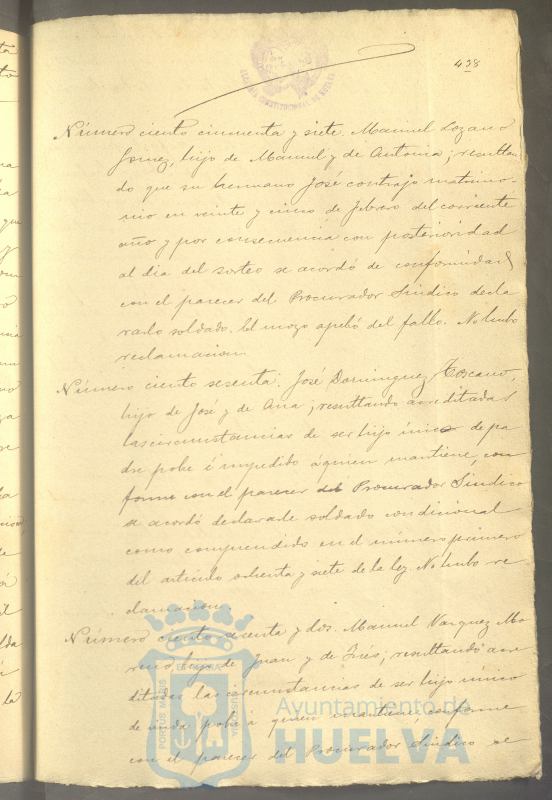 438
Número ciento cincuenta y siete. Manuel Lozano
Gomez, hijo de Manuel y de Antonia; resultan
do que su hermano José contrajo matrimo-
nio en veinte y cinco de febrero del corriente
año y por consecuencia con posterioridad
al dia del sorteo se acordó de conformidad
con el parecer del Procurador Sindico decla
rarlo soldado. El mozo apeló del fallo. No hubo
reclamacion.
Número ciento sesenta. José Dominguez Toscano,
hijo de José y de Ana; resultando acreditadas
las circunstancias de ser hijo único de pa
dre pobre é impedido á quien mantiene, con
forme con el parecer del Procurador Sindico
se acordó declararle soldado condicional
como comprendido en el número primero
del articulo ochenta y siete de la ley. No hubo re-
clamacion.
Número ciento sesenta y dos. Manuel Vazquez Mo
reno, hijo de Juan y de Inés; resultando acre
ditadas las circunstancias de ser hijo único
de viuda pobre á quien mantiene, conforme
con el parecer del Procurador Sindico se
PORTUS MARIS ET TERRAE CUSTODIA
Ayuntamiento de
HUELVA